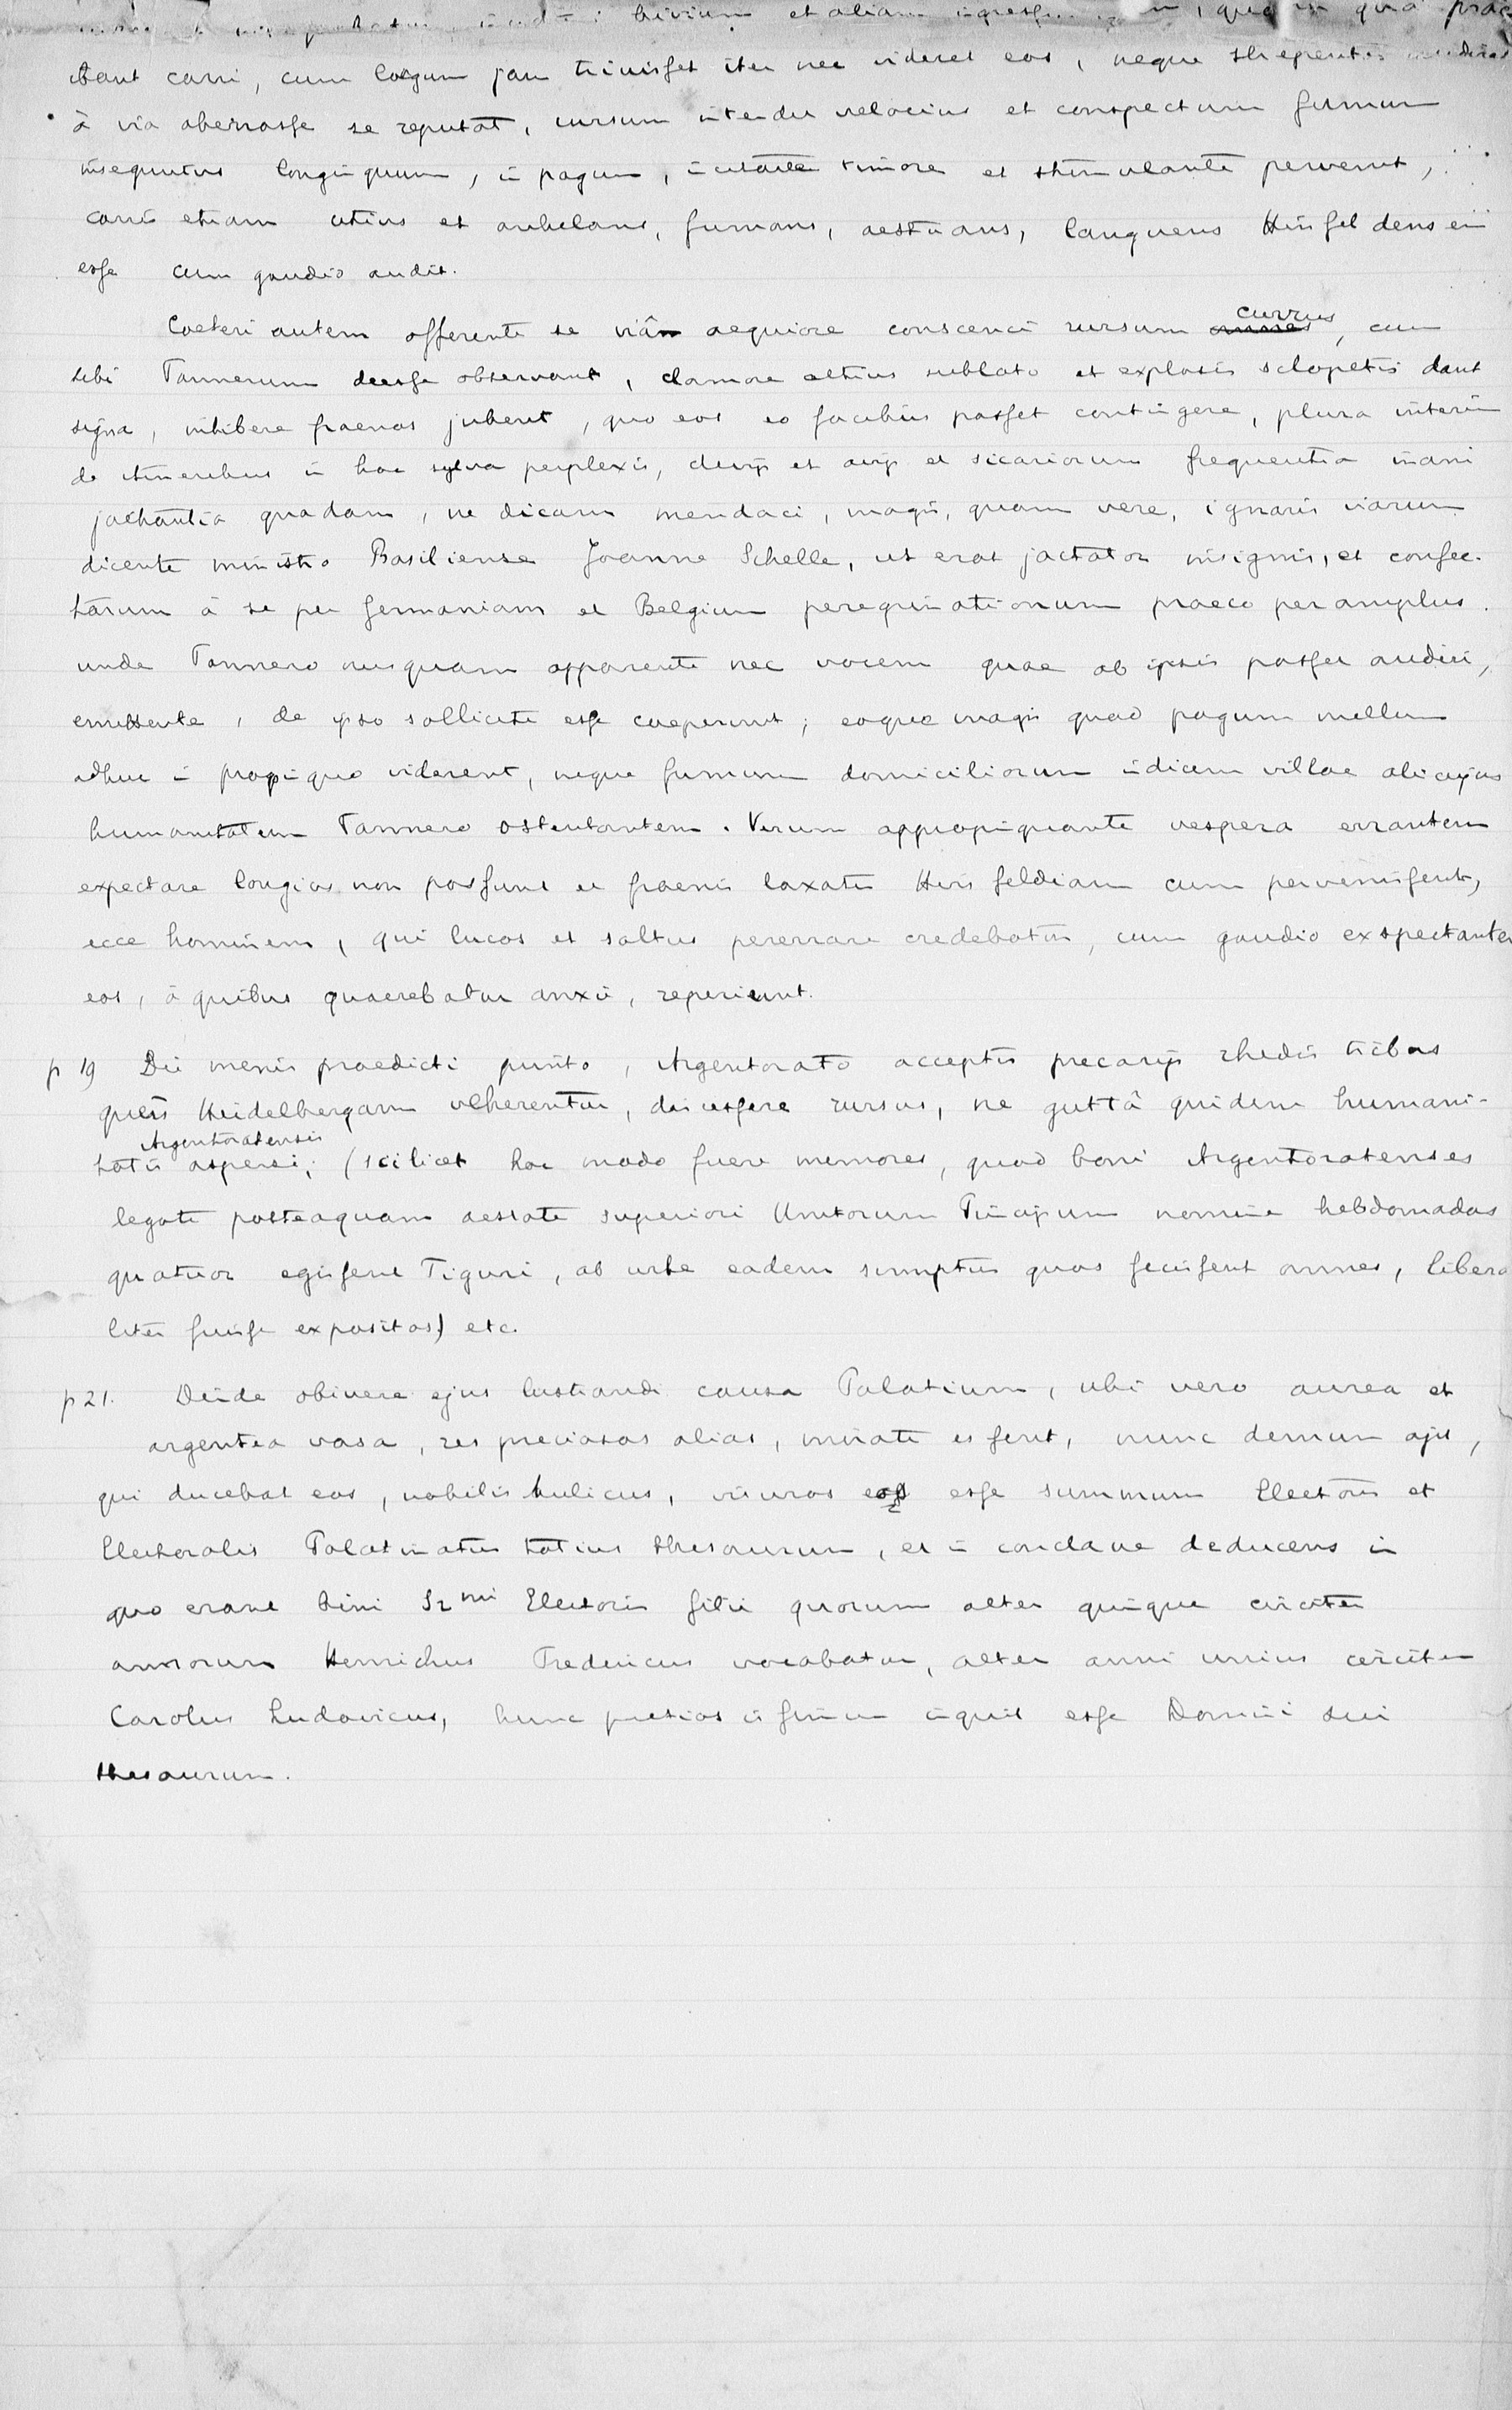 bivium et aliam ingressus
ibant carri, cum longum jam trivisset iter nec videret eos, neque strepentes
à via aberrasse se reputat, cursum intendit velocius et conspectum fumum
insequutus longinquum, in pagum, incitante timore et stimulante pervenit,
carris etiam citius et anhelans, fumans, aestuans, languens Hirsfeldensem
esse cum gaudio audit.
Caeteri autem offerente se viâ aequiore conscenci rursum currus, cum
sibi Tannerum deesse observant, clamore altius sublato et explosis sclopetis dant
signa, inhibere fraenos jubent, quo eos eo facilius posset contingere, plura interim
de itineribus in hac sylva perplexis, deviis et aviis et sicariorum frequentia inani
jactantia quadam, ne dicam mendaci, magis, quam vere, ignaris viarum
dicente ministro Basiliense Joanne Schelle, ut erat jactator insignis, et confec-
tarum à se per Germaniam et Belgium peregrinationum praeco peramplus.
unde Tannero nusquam apparente nec vocem quae ab ipsis posset audiri,
emittente, de ipso solliciti esse caeperunt; eoque magis quod pagum nullum
adhuc in propinquo viderent, neque fumum domiciliorum indicem villae alicujus
humanitatem Tannero ostentantem. Verum appropinquante vespera errantem
expectare longius non possunt et fraenis laxatis Hirsfeldiam cum pervenissent,
ecce hominem, qui lucos et saltus pererrare credebatur, cum gaudio exspectantem
eos, à quibus quaerebatur anxie, reperiunt.
p 19 Die mensis praedicti quinto, Argentorato acceptis precariis rhedis tribus
queis Heidelbergam veherentur, discessere rursus, ne guttâ quidem humani-
tatis Argentoratensis aspersi; (scilicet hoc modo fuere memores, quod boni Argentoratenses
legati posteaquam aestate superiori Unitorum Principum nomine hebdomadas
quatuor egissent Tiguri, ab urbe eadem sumptus quos fecissent omnes, libera
liter fuisse expositos) etc.
p 21. Deinde obivere ejus lustrandi causa Palatium, ubi vero aurea et
argentea vasa, res preciosas alias, mirati essent, nunc demum ajit,
qui ducebat eos, nobilis Aulicus, visuros eos esse summum Electoris et
Electoralis Palatinatus totius thesaurum, et in conclave deducens in
quo erant bini Srmi Electoris filii quorum alter quinque circiter
annorum Henrichus Fredericus vocabatur, alter anni unius circiter
Carolus Ludovicus, hunc pretiosissimum inquit esse Domini sui
thesaurum.